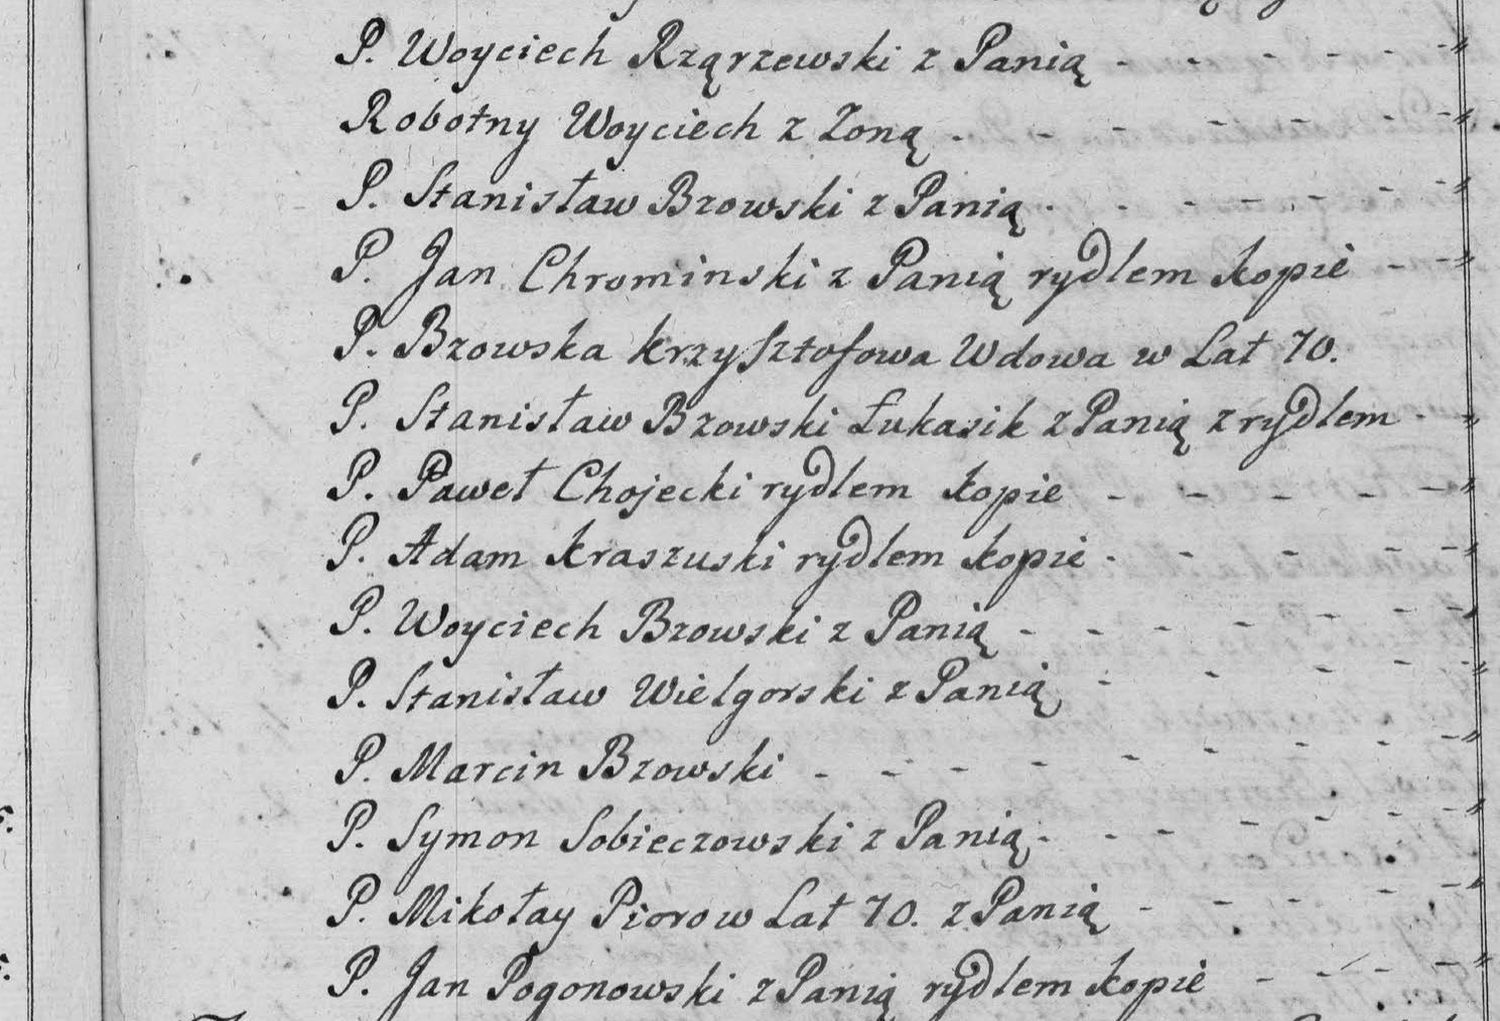 P. Woyciech Rząrzewski z Panią - - - - - - "
Robotny Woyciech z Zoną - - - - - - - "
P. Stanisław Bzowski z Panią - - - - - - - "
P. Jan Chrominski z Panią rydlem kopie - - "
P. Bzowska Krzysztofowa Wdowa w Lat 70.
P. Stanisław Bzowski Łukasik z Panią z rydlem - - "
P. Paweł Chojecki rydlem kopie - - - - - "
P. Adam Kraszuski rydlem kopie - - - - - "
P. Woyciech Bzowski z Panią - - - - - - - "
P. Stanisław Wielgorski z Panią - - - - - "
P. Marcin Bzowski - - - - - - - - "
P. Symon Sobieczowski z Panią - - - - - - - "
P. Mikołay Pioro w Lat 70. z Panią - - - - - "
P. Jan Pogonowski z Panią rydlem kopie - - - - "